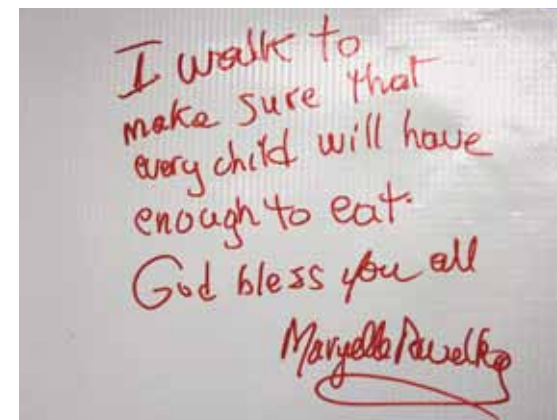 I walk to
make sure that
every child will have
enough to eat.
God bless you all